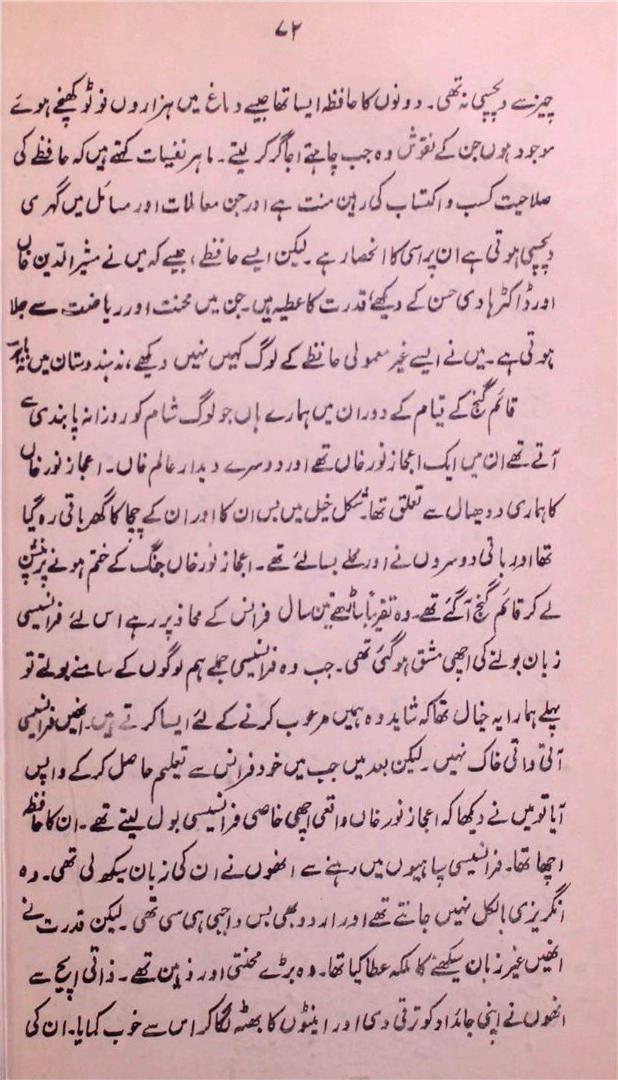 ۷۲
چیز سے دلچسپی نہ تھی۔ دونوں کا حافظہ ایسا تھا جیسے دماغ میں ہزاروں فوٹو کھنچے ہوئے
موجود ہوں جن کے نقوش وہ جب چاہتے اجاگر کر لیتے۔ ماہر نفسیات کہتے ہیں کہ حافظے کی
صلاحیت کسب و اکتساب کی رہین منت ہے اور جن معاملات اور مسائل میں گہری
دلچسپی ہوتی ہے ان پر اسی کا انحصار ہے۔ لیکن ایسے حافظے، جیسے کہ میں نے منیر الدین خاں
اور ڈاکٹر ہادی حسن کے دیکھے، قدرت کا عطیہ ہیں۔ جن میں محنت اور ریاضت سے جلا
ہوتی ہے۔ میں نے ایسے غیر معمولی حافظے کے لوگ کہیں نہیں دیکھے، نہ ہندوستان میں نہ باہر۔
قائم گنج کے قیام کے دوران میں ہمارے ہاں جو لوگ شام کو روزانہ پابندی سے
آتے تھے ان میں ایک اعجاز نور خاں تھے اور دوسرے دیدار عالم خاں۔ اعجاز نور خاں
کا ہماری ددھیال سے تعلق تھا۔ شکل خیل میں بس ان کا اور ان کے چچا کا گھر باقی رہ گیا
تھا اور باقی دوسروں نے اور محلے بسا لئے تھے۔ اعجاز نور خاں جنگ کے ختم ہونے پر پنشن
لے کر قائم گنج آ گئے تھے۔ وہ تقریباً ساڑھے تین سال فرانس کے محاذ پر رہے اس لئے فرانسیسی
زبان بولنے کی اچھی مشق ہو گئی تھی۔ جب وہ فرانسیسی جملے ہم لوگوں کے سامنے بولتے تو
پہلے ہمارا یہ خیال تھا کہ شاید وہ ہمیں مرعوب کرنے کے لئے ایسا کرتے ہیں۔ انھیں فرانسیسی
آتی واتی خاک نہیں۔ لیکن بعد میں جب میں خود فرانس سے تعلیم حاصل کر کے واپس
آیا تو میں نے دیکھا کہ اعجاز نور خاں واقعی اچھی خاصی فرانسیسی بول لیتے تھے۔ ان کا حافظہ
اچھا تھا۔ فرانسیسی سپاہیوں میں رہنے سے انھوں نے ان کی زبان سیکھ لی تھی۔ وہ
انگریزی بالکل نہیں جانتے تھے اور اردو بھی بس واجبی ہی سی تھی۔ لیکن قدرت نے
انھیں غیر زبان سیکھنے کا ملکہ عطا کیا تھا۔ وہ بڑے محنتی اور ذہین تھے۔ ذاتی اپج سے
انھوں نے اپنی جائداد کو ترقی دی اور اینٹوں کا بھٹہ لگا کر اس سے خوب کمایا۔ ان کی